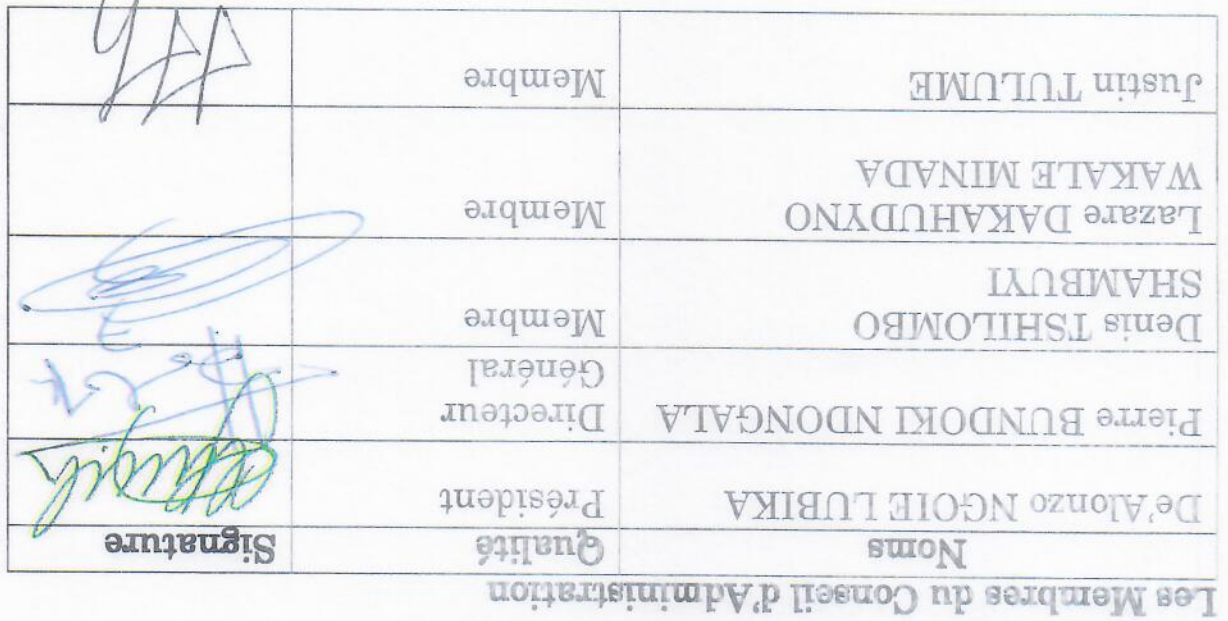 Les Membres du Conseil d'Administration
Noms Qualité Signature
De'Alonzo NGOIE LUBIKA Président
Pierre BUNDOKI NDONGALA Directeur
Général
Denis TSHILOMBO Membre
SHAMBUYI
Lazare DAKAHUDYNO Membre
WAKALE MINADA
Justin TULUME Membre